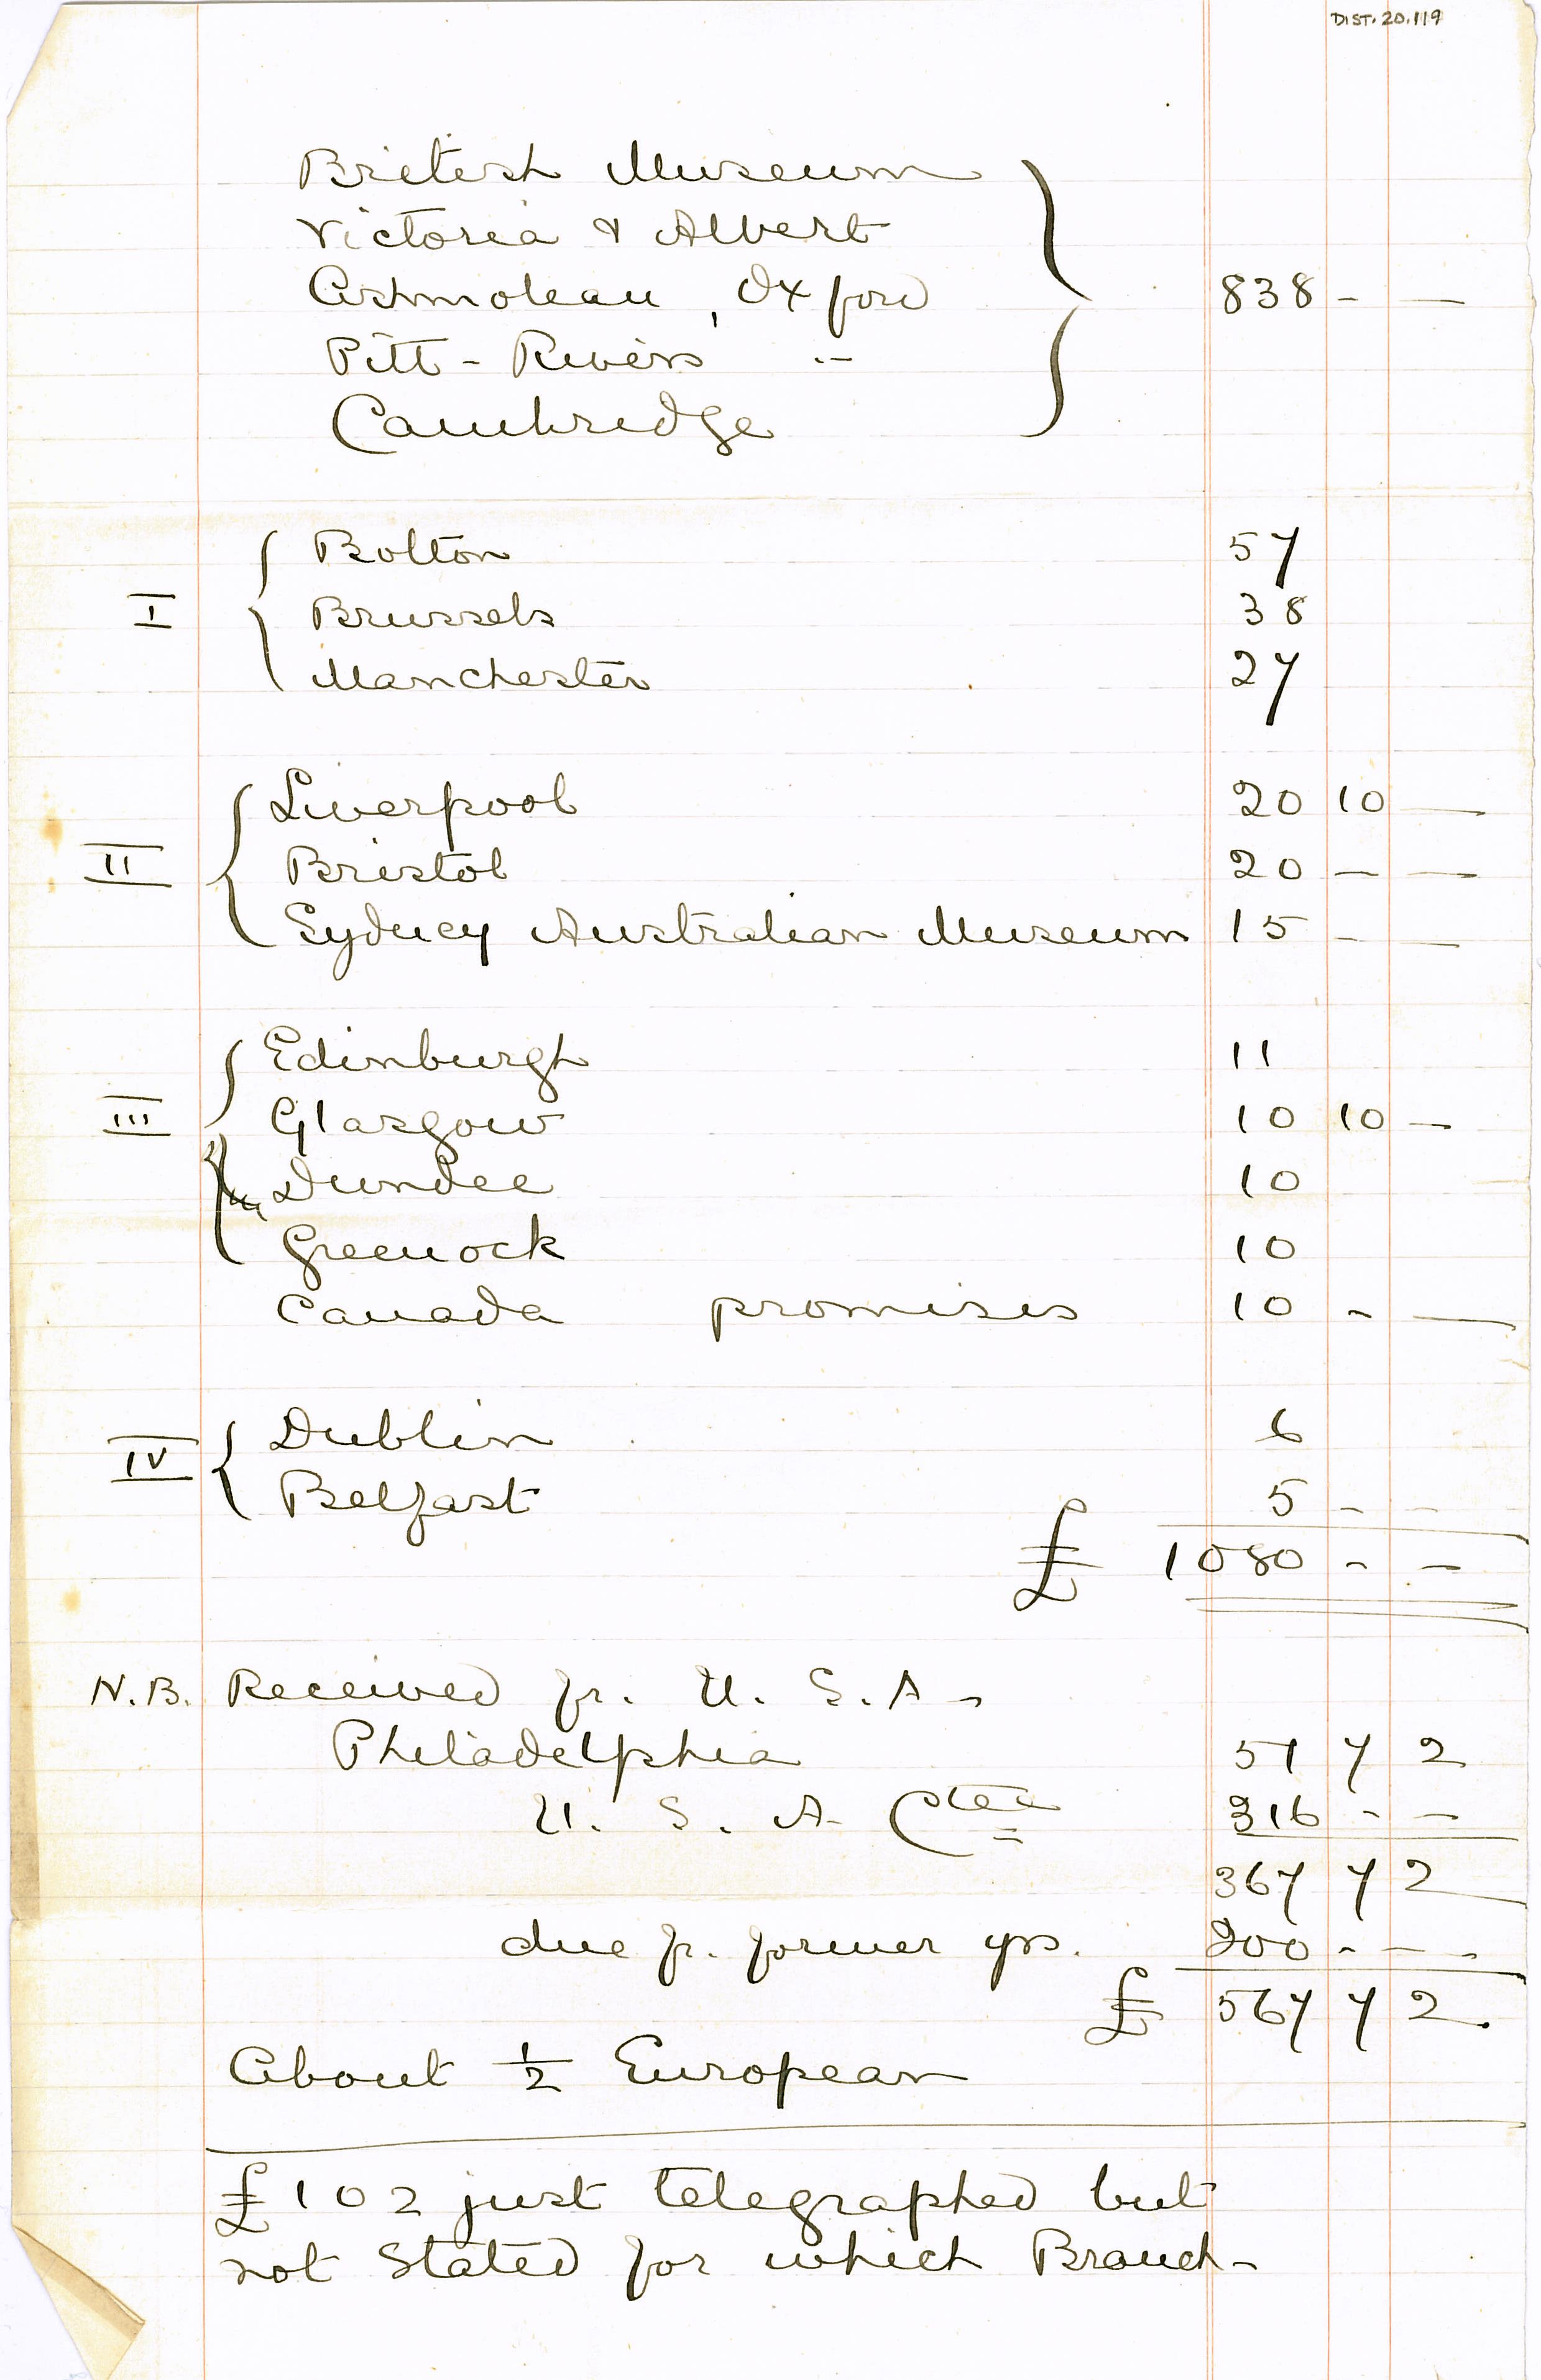 DIST. 20.119
British Museum
Victoria & Albert
Ashmolean, Oxford 838 - —
Pitt-Rivers "
Cambridge
Bolton 57
I Brussels 38
Manchester 27
Liverpool 20 10 —
II Bristol 20 — —
Sydney Australian Museum 15 - —
Edinburgh 11
III Glasgow 10 10 —
Dundee 10
Greenock 10
Canada promises 10 - —
Dublin 6
IV Belfast 5 - -
£ 1080 - —
N.B. Received fr. U.S.A -
Philadelphia 51 7 2
U.S.A. Cttee 316 - —
367 7 2
due fr. former yrs. 200 - — -
£ 567 7 2.
About ½ European
£102 just telegraphed but
not stated for which Branch -